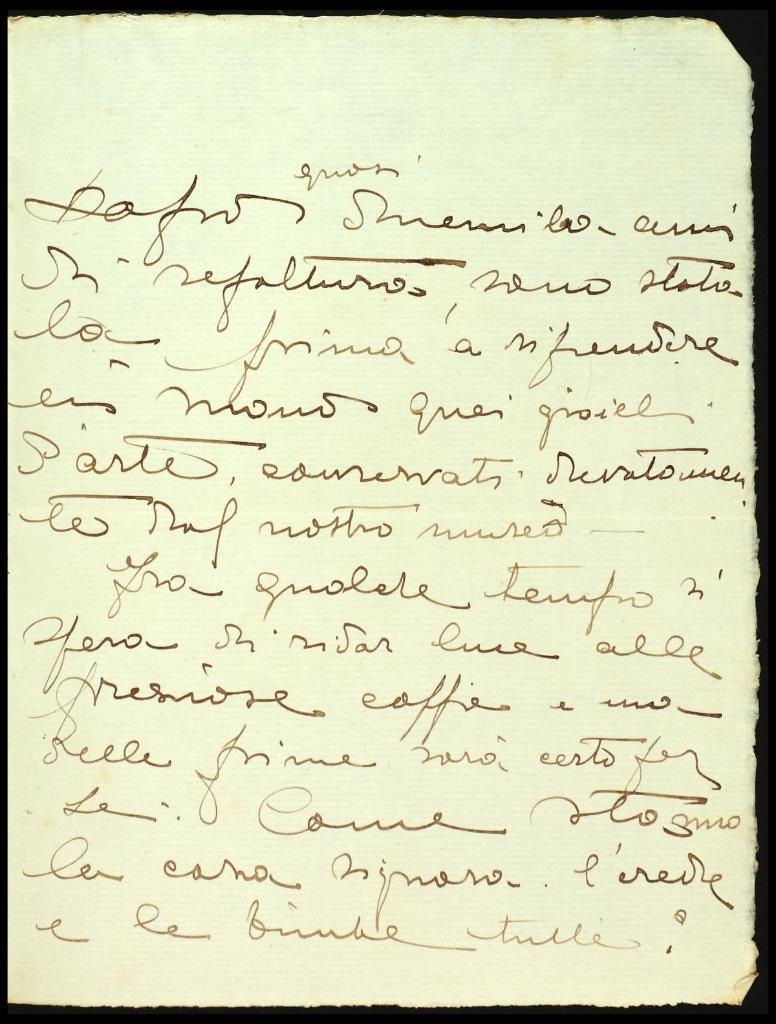 quasi
Dopo duemila anni
di sepoltura, sono stata
la prima a riprendere
in mano quei gioielli
d'arte, conservati devotamen
te dal nostro museo —
Fra qualche tempo si
spera di ridar luce alle
preziose coppe e una
delle prime sarà certo per
Lei. Come stanno
la cara signora. l'erede
e le bimbe tutte?